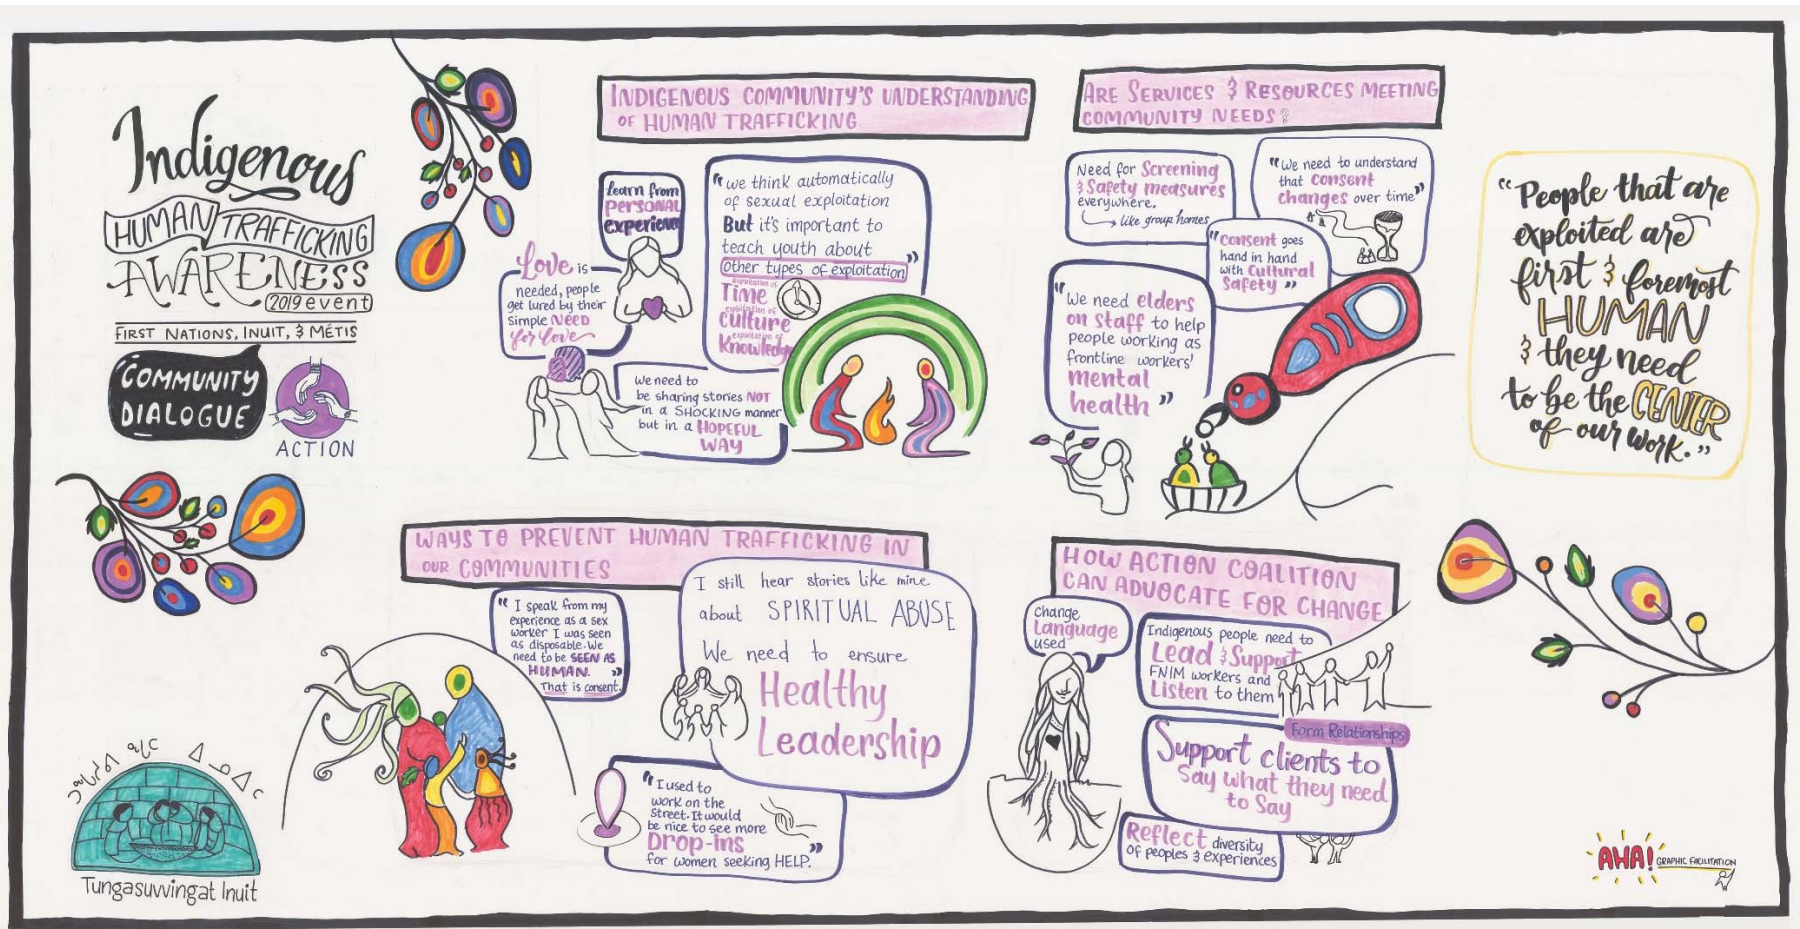 Indigenous
HUMAN TRAFFICKING
AWARENESS
2019 event
FIRST NATIONS, INUIT, & MÉTIS
COMMUNITY
DIALOGUE
ACTION
INDIGENOUS COMMUNITY'S UNDERSTANDING
OF HUMAN TRAFFICKING
learn from
PERSONAL
experience
Love is
needed, people
get lured by their
simple NEED
for love
"we think automatically
of sexual exploitation
But it's important to
teach youth about
Other types of exploitation"
exploitation of
Time
exploitation of
Culture
exploitation of
Knowledge
We need to
be sharing stories NOT
in a SHOCKING manner
but in a HOPEFUL
WAY
ARE SERVICES & RESOURCES MEETING
COMMUNITY NEEDS?
Need for Screening
& Safety measures
everywhere.
like group homes
"We need to understand
that consent
changes over time"
"Consent goes
hand in hand
with Cultural
Safety"
"We need elders
on staff to help
people working as
frontline workers'
mental
health"
"People that are
exploited are
first & foremost
HUMAN
& they need
to be the CENTER
of our work."
WAYS TO PREVENT HUMAN TRAFFICKING IN
OUR COMMUNITIES
"I speak from my
experience as a sex
worker I was seen
as disposable. We
need to be SEEN AS
HUMAN."
That is consent.
I still hear stories like mine
about SPIRITUAL ABUSE
We need to ensure
Healthy
Leadership
"I used to
work on the
street. It would
be nice to see more
Drop-ins
for women seeking HELP."
HOW ACTION COALITION
CAN ADVOCATE FOR CHANGE
Change
Language
used
Indigenous people need to
Lead & Support
FNIM workers and
Listen to them
Form Relationships
Support clients to
Say what they need
to Say
Reflect diversity
of peoples & experiences
Tungasuvvingat Inuit
AHA! GRAPHIC FACILITATION